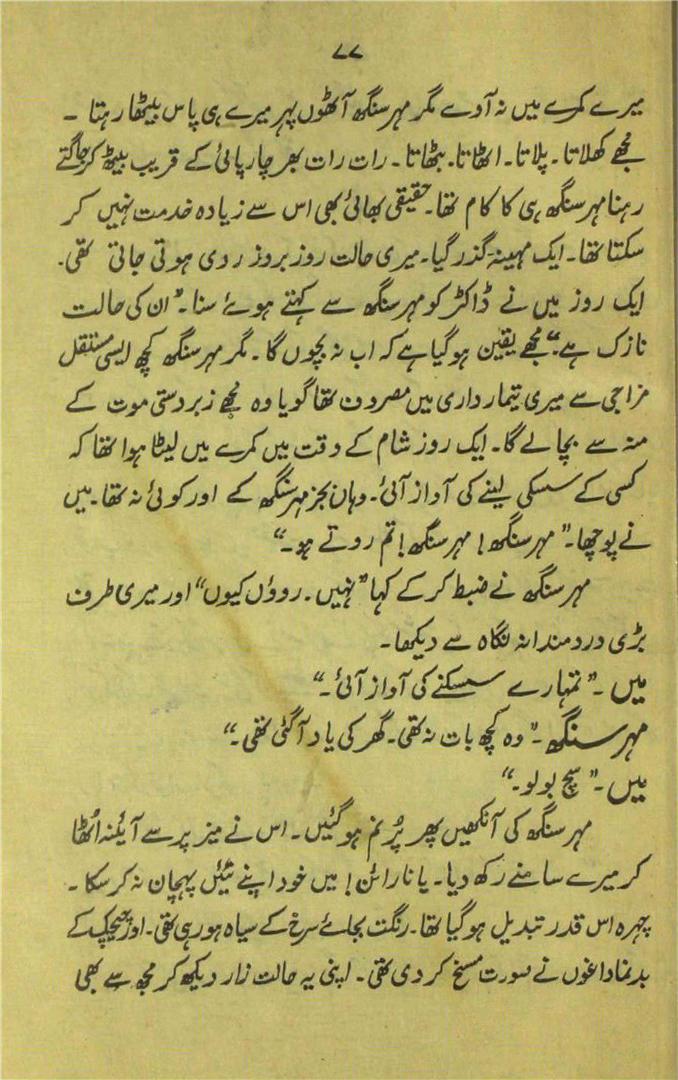 ۷۷
میرے کمرے میں نہ آوے مگر مہر سنگھ آٹھوں پہر میرے ہی پاس بیٹھا رہتا ۔
مجھے کھلاتا۔ پلاتا۔ اٹھاتا۔ بٹھاتا۔ رات رات بھر چارپائی کے قریب بیٹھ کر جاگتے
رہنا مہر سنگھ ہی کا کام تھا۔ حقیقی بھائی بھی اس سے زیادہ خدمت نہیں کر
سکتا تھا۔ ایک مہینہ گذر گیا۔ میری حالت روز بروز ردی ہوتی جاتی تھی۔
ایک روز میں نے ڈاکٹر کو مہر سنگھ سے کہتے ہوئے سنا۔ ”ان کی حالت
نازک ہے۔“ مجھے یقین ہو گیا ہے کہ اب نہ بچوں گا۔ مگر مہر سنگھ کچھ ایسی مستقل
مزاجی سے میری تیمارداری میں مصروف تھا گویا وہ مجھے زبردستی موت کے
منہ سے بچا لے گا۔ ایک روز شام کے وقت میں کمرے میں لیٹا ہوا تھا کہ
کسی کے سسکی لینے کی آواز آئی۔ وہاں بجز مہر سنگھ کے اور کوئی نہ تھا۔ میں
نے پوچھا۔ ”مہر سنگھ! مہر سنگھ! تم روتے ہو۔“
مہر سنگھ نے ضبط کر کے کہا ”نہیں۔ روؤں کیوں“ اور میری طرف
بڑی دردمندانہ نگاہ سے دیکھا۔
میں ۔ ”تمہارے سسکنے کی آواز آئی۔“
مہر سنگھ ۔ ”وہ کچھ بات نہ تھی۔ گھر کی یاد آ گئی تھی۔“
میں ۔ ”سچ بولو۔“
مہر سنگھ کی آنکھیں پھر پُرنم ہو گئیں۔ اس نے میز پر سے آئینہ اُٹھا
کر میرے سامنے رکھ دیا۔ یا نارائن! میں خود اپنے تئیں پہچان نہ کر سکا ۔
چہرہ اس قدر تبدیل ہو گیا تھا۔ رنگت بجائے سرخ کے سیاہ ہو رہی تھی۔ اور چیچک کے
بدنما داغوں نے صورت مسخ کر دی تھی۔ اپنی یہ حالت زار دیکھ کر مجھ سے بھی